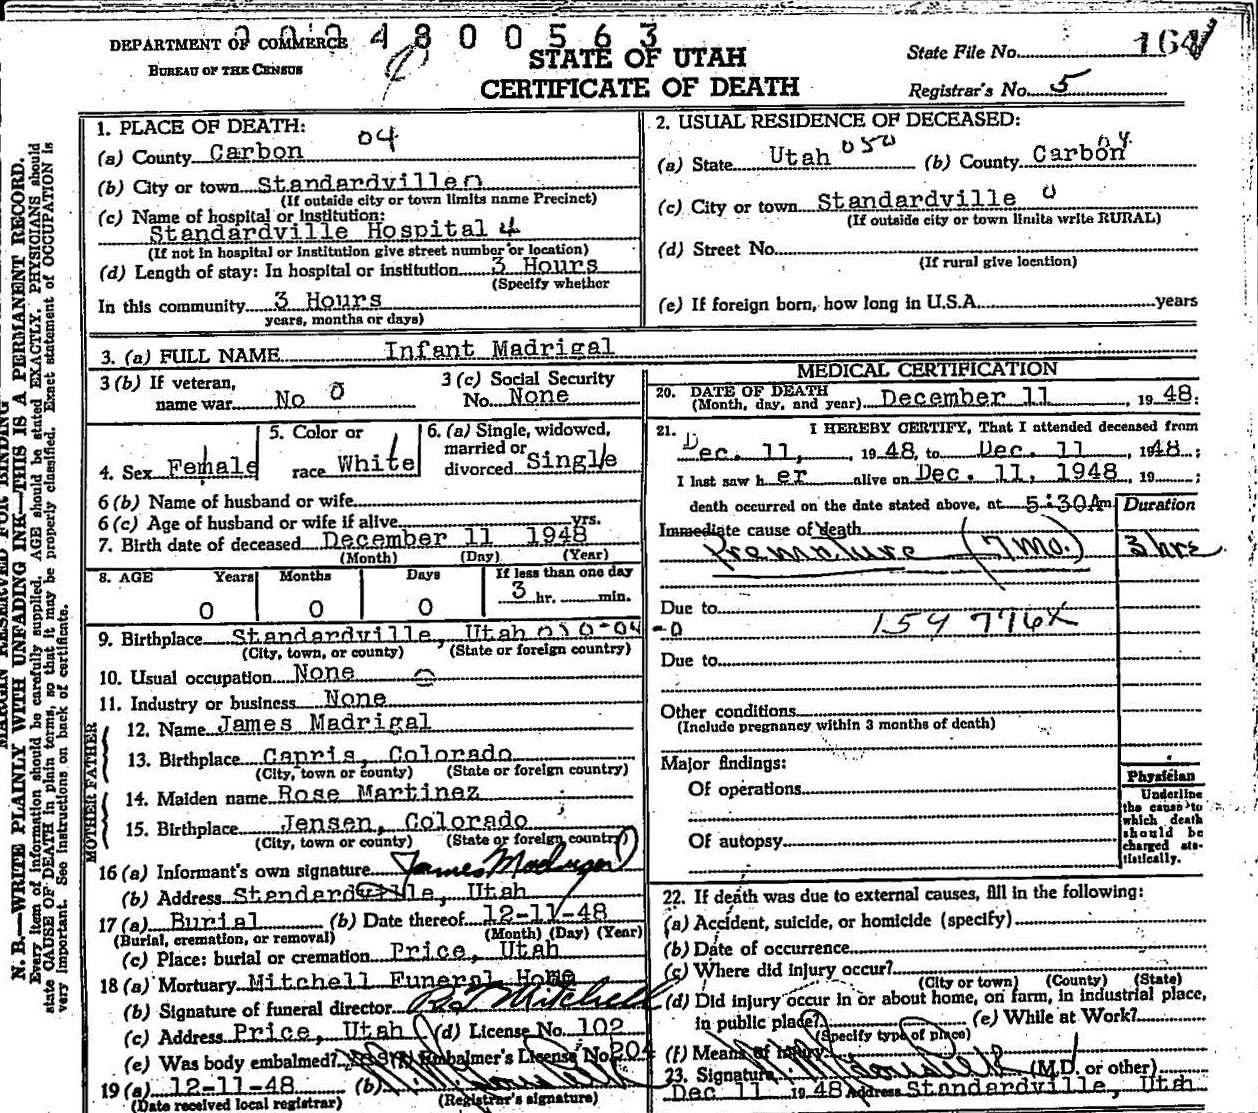 004800563
DEPARTMENT OF COMMERCE
BUREAU OF THE CENSUS
STATE OF UTAH
CERTIFICATE OF DEATH
State File No. 164
Registrar's No. 5
MARGIN RESERVED FOR BINDING
N. B.—WRITE PLAINLY WITH UNFADING INK—THIS IS A PERMANENT RECORD.
Every item of information should be carefully supplied. AGE should be stated EXACTLY. PHYSICIANS should
state CAUSE OF DEATH in plain terms, so that it may be properly classified. Exact statement of OCCUPATION is
very important. See instructions on back of certificate.
1. PLACE OF DEATH: 04
(a) County Carbon
(b) City or town Standardville 0
(If outside city or town limits name Precinct)
(c) Name of hospital or institution:
Standardville Hospital 4
(If not in hospital or institution give street number or location)
(d) Length of stay: In hospital or institution 3 Hours
(Specify whether
In this community 3 Hours
years, months or days)
2. USUAL RESIDENCE OF DECEASED:
(a) State Utah 050 (b) County Carbon 04
(c) City or town Standardville 0
(If outside city or town limits write RURAL)
(d) Street No.
(If rural give location)
(e) If foreign born, how long in U.S.A. years
3. (a) FULL NAME Infant Madrigal
3 (b) If veteran,
name war No 0
3 (c) Social Security
No. None
4. Sex Female
5. Color or
race White
6. (a) Single, widowed,
married or
divorced Single
6 (b) Name of husband or wife
6 (c) Age of husband or wife if alive yrs.
7. Birth date of deceased December 11 1948
(Month) (Day) (Year)
8. AGE Years Months Days If less than one day
0 0 0 3 hr. min.
9. Birthplace Standardville, Utah 050-04
(City, town, or county) (State or foreign country)
10. Usual occupation None
11. Industry or business None
FATHER
12. Name James Madrigal
13. Birthplace Capris, Colorado
(City, town or county) (State or foreign country)
MOTHER
14. Maiden name Rose Martinez
15. Birthplace Jensen, Colorado
(City, town or county) (State or foreign country)
16 (a) Informant's own signature James Madrigal
(b) Address Standardville, Utah
17 (a) Burial (b) Date thereof 12-11-48
(Burial, cremation, or removal) (Month) (Day) (Year)
(c) Place: burial or cremation Price, Utah
18 (a) Mortuary Mitchell Funeral Home
(b) Signature of funeral director Mitchell
(c) Address Price, Utah (d) License No. 102
(e) Was body embalmed? Embalmer's License No. 204
19 (a) 12-11-48 (b)
(Date received local registrar) (Registrar's signature)
MEDICAL CERTIFICATION
20. DATE OF DEATH
(Month, day, and year) December 11, 19 48:
21. I HEREBY CERTIFY, That I attended deceased from
Dec. 11, 19 48, to Dec. 11 1948;
I last saw h er alive on Dec. 11, 1948, 19 ;
death occurred on the date stated above, at 5:30 Am.
Duration
Immediate cause of death
Premature (7 mo.) 3 hrs
Due to
-0 159 776X
Due to
Other conditions
(Include pregnancy within 3 months of death)
Major findings:
Of operations
Of autopsy
Physician
Underline
the cause to
which death
should be
charged sta-
tistically.
22. If death was due to external causes, fill in the following:
(a) Accident, suicide, or homicide (specify)
(b) Date of occurrence
(c) Where did injury occur?
(City or town) (County) (State)
(d) Did injury occur in or about home, on farm, in industrial place,
in public place? (e) While at Work?
(Specify type of place)
(f) Means of injury
23. Signature (M.D. or other)
Dec 11 19 48 Address Standardville, Utah